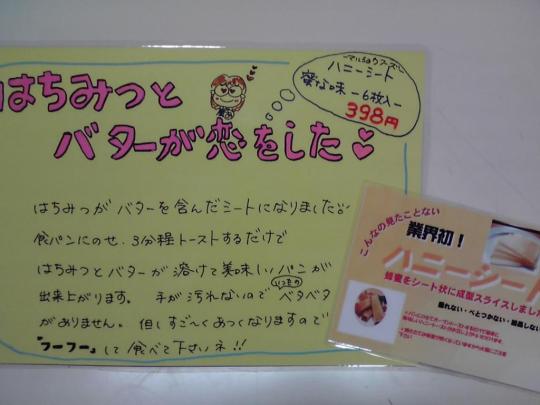 はちみつと
バターが恋をした
マルシェウスズ
ハニーシート
蜜な味 -6枚入-
398円
はちみつがバターを含んだシートになりました
食パンにのせ、3分程トーストするだけで
はちみつとバターが溶けて美味しいパンが
出来上がります。手が汚れないので いつもの ベタベタ
がありません。但しすご〜くあつくなりますので
"フーフー"して食べて下さいネ!!
こんなの見たことない
業界初!
ハニーシート
蜂蜜をシート状に成型スライスしました
垂れない・べとつかない・